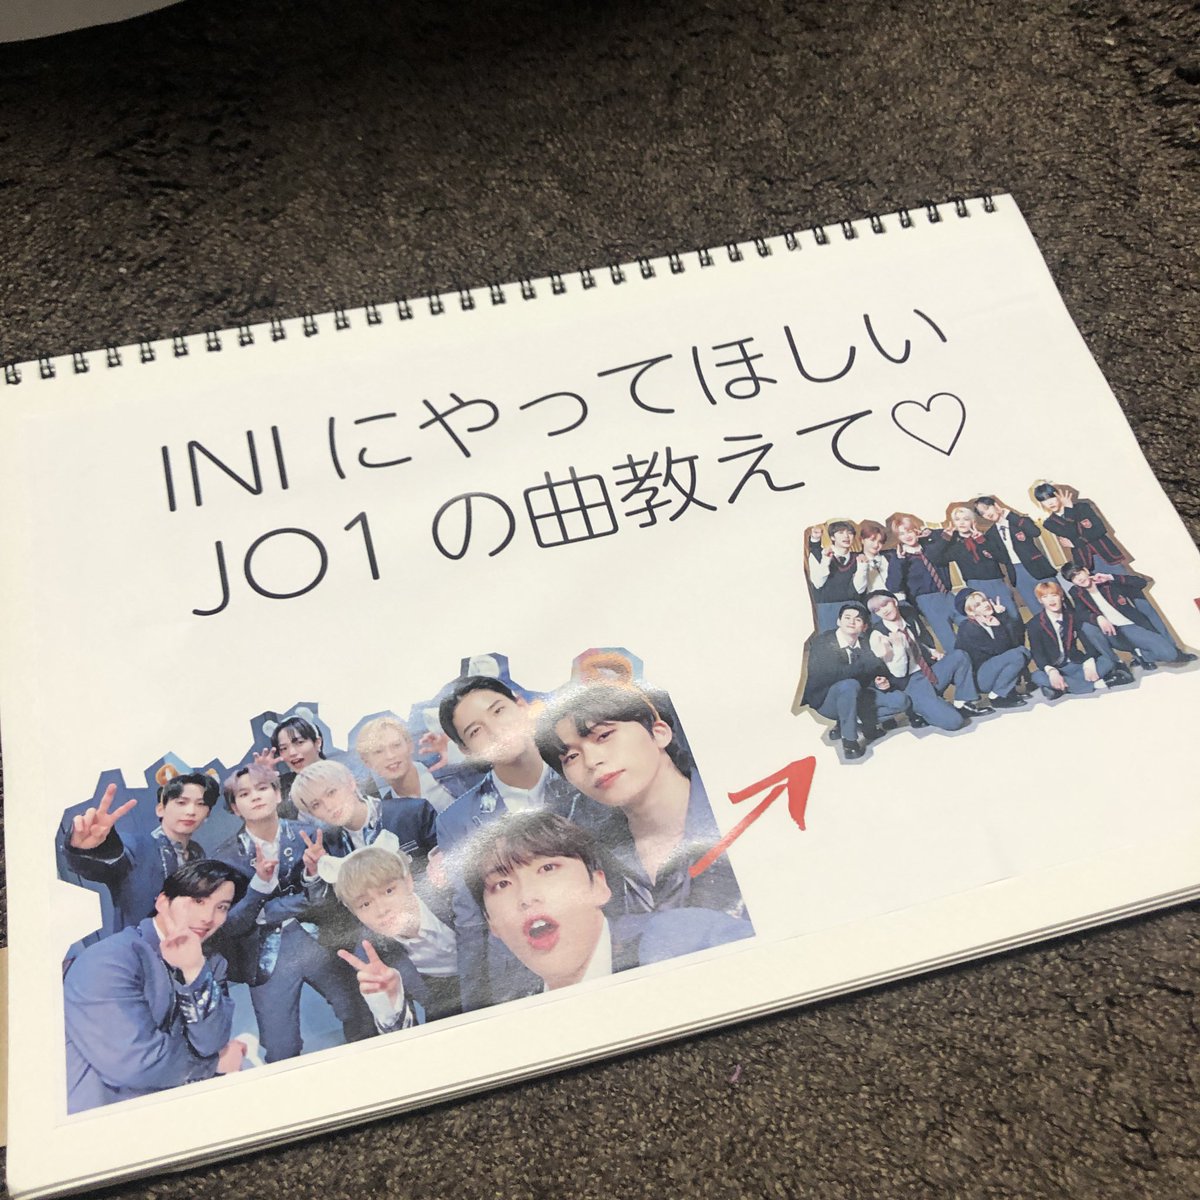 INIにやってほしい
JO1の曲教えて♡